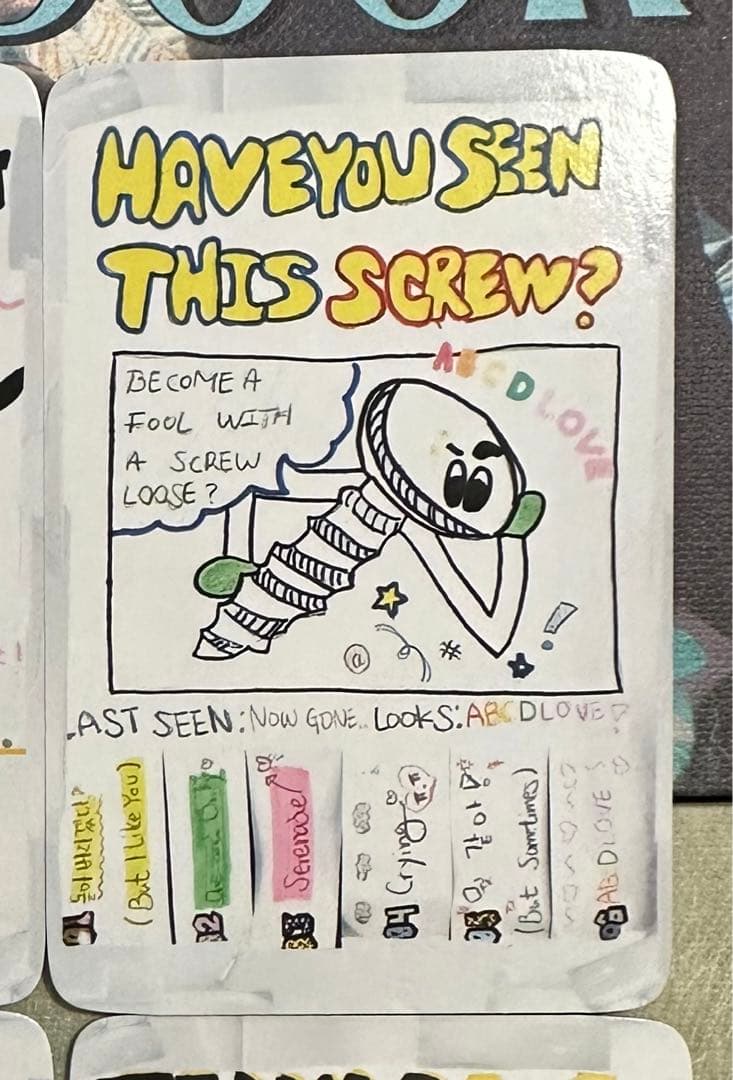 HAVE YOU SEEN
THIS SCREW?
ABCDLOVE
BECOME A
FOOL WITH
A SCREW
LOOSE?
@
#
!
LAST SEEN: NOW GONE.. LOOKS: ABCDLOVE?
01 돌아버리겠다
(But I Like You)
02
03 Serenade
04 Crying
ㅠ.ㅠ
05 같아
(But Sometimes)
06 ABCDLOVE